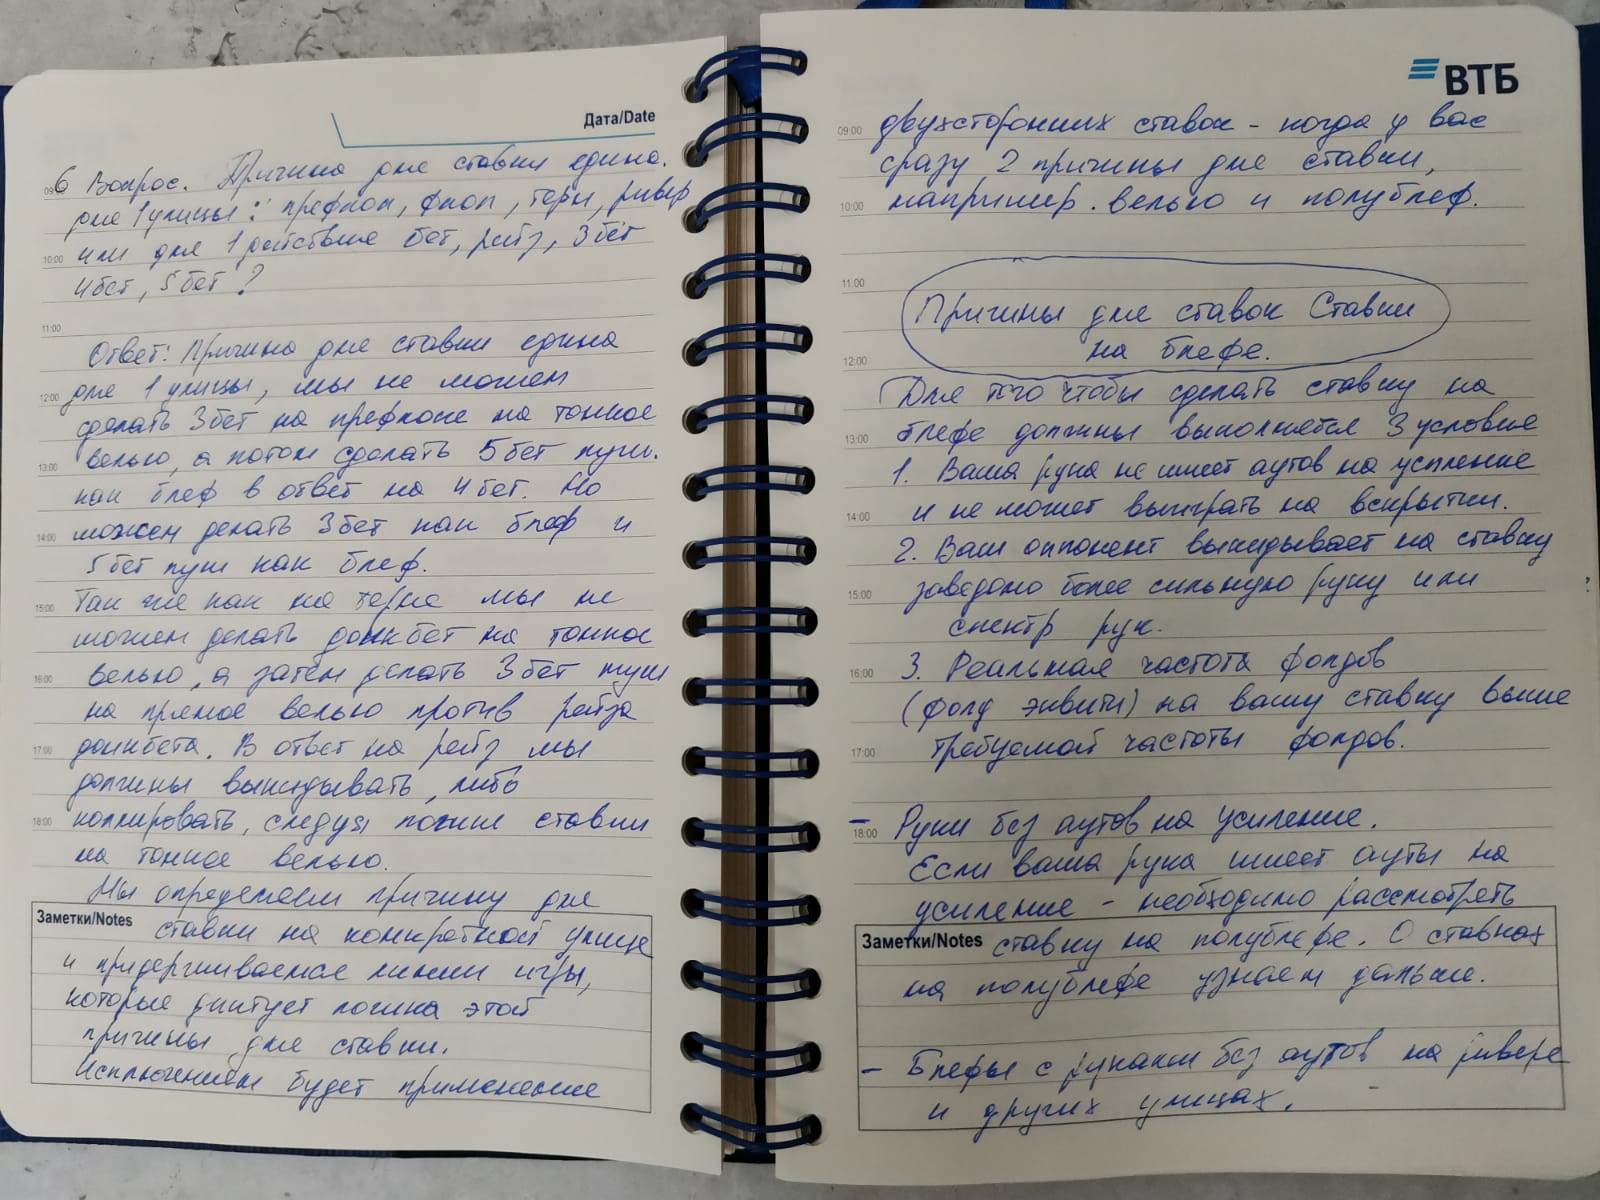 Дата/Date
6 Вопрос. Причина для ставки едина.
09
для 1 улицы: префлоп, флоп, терн, ривер
или для 1 действие бет, рейз, 3бет
10:00
4бет, 5бет ?
11:00
Ответ: Причина для ставки едина
для 1 улицы, мы не можем
12:00
сделать 3бет на префлопе на тонкое
велью, а потом сделать 5бет пуш.
13:00
как блеф в ответ на 4бет. Но
можем делать 3бет как блеф и
14:00
5бет пуш как блеф.
Так же как на терне мы не
15:00
можем делать донкбет на тонкое
велью, а затем делать 3бет пуш
16:00
на прямое велью против рейза
донкбета. В ответ на рейз мы
17:00
должны выкидывать, либо
коллировать, следуя логике ставки
18:00
на тонкое велью.
Мы определяем причину для
Заметки/Notes
ставки на конкретной улице
и придерживаемся линии игры,
которые диктует логика этой
причины для ставки.
Исключением будет применение
ВТБ
двухсторонних ставок - когда у вас
09:00
сразу 2 причины для ставки,
например. велью и полублеф.
10:00
11:00
Причины для ставок Ставки
на блефе.
12:00
Для того чтобы сделать ставку на
блефе должны выполняется 3 условие
13:00
1. Ваша рука не имеет аутов на усиление
и не может выиграть на вскрытии.
14:00
2. Ваш оппонент выкидывает на ставку
заведомо более сильную руку или
15:00
спектр рук.
3. Реальная частота фолдов
16:00
(фолд эквити) на вашу ставку выше
требуемой частоты фолдов.
17:00
- Руки без аутов на усиление.
18:00
Если ваша рука имеет ауты на
усиление - необходимо рассмотреть
Заметки/Notes
ставку на полублефе. О ставках
на полублефе узнаем дальше.
- Блефы с руками без аутов на ривере
и других улицах.